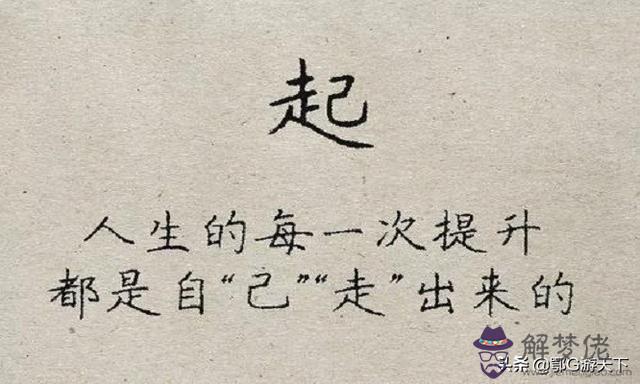 起
人生的每一次提升
都是自“己”“走”出来的
解梦佬
头条@鄂G游天下